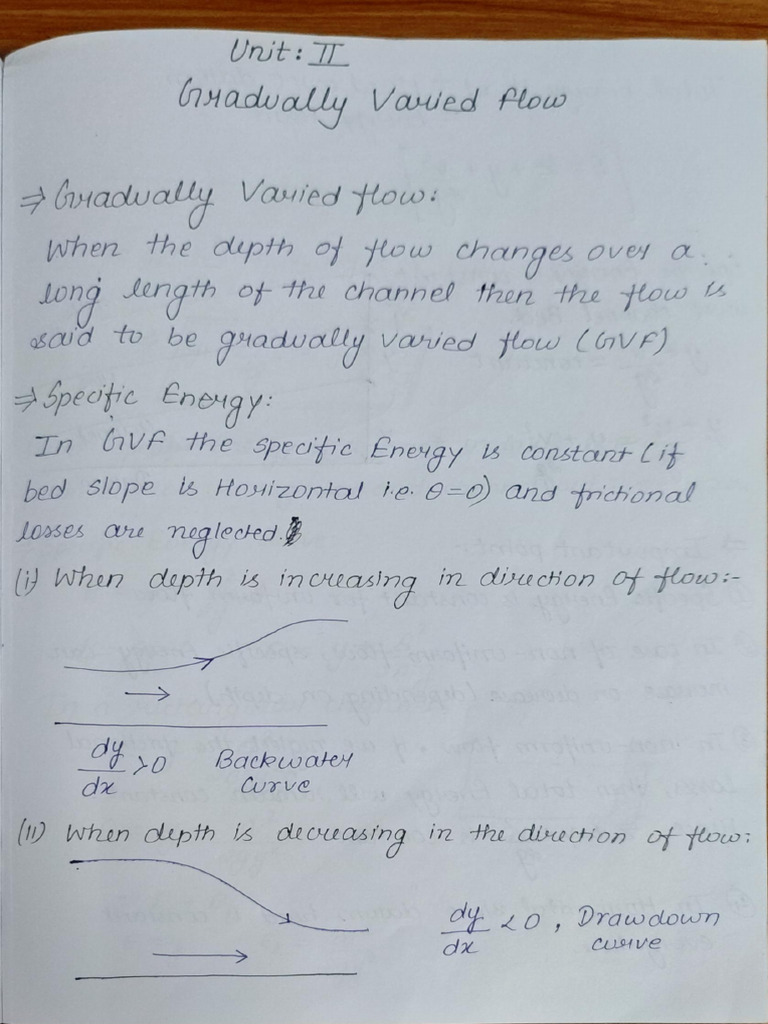 Unit: II
Gradually Varied flow
⇒ Gradually Varied flow:
When the depth of flow changes over a
long length of the channel then the flow is
said to be gradually varied flow (GVF)
⇒ Specific Energy:
In GVF the specific Energy is constant (if
bed slope is Horizontal i.e. θ=0) and frictional
losses are neglected.
(i) When depth is increasing in direction of flow:-
dy/dx >0 Backwater
curve
(ii) When depth is decreasing in the direction of flow:
dy/dx <0, Drawdown
curve